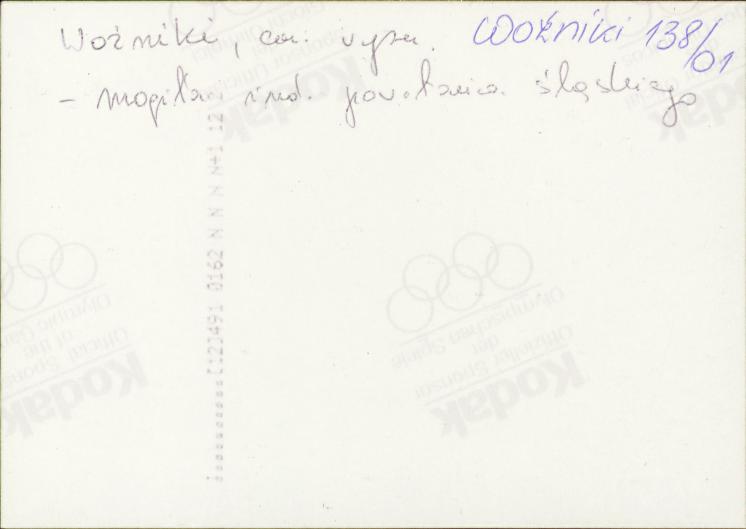 Woźniki, cm. wyzn. WOŹNIKI 138/01
- mogiła ind. powstańca śląskiego
[12]491 0162 N N N N+1 12
Kodak
Official Sponsor
of the
Olympic Games
Kodak
Offizieller Sponsor
der
Olympischen Spiele